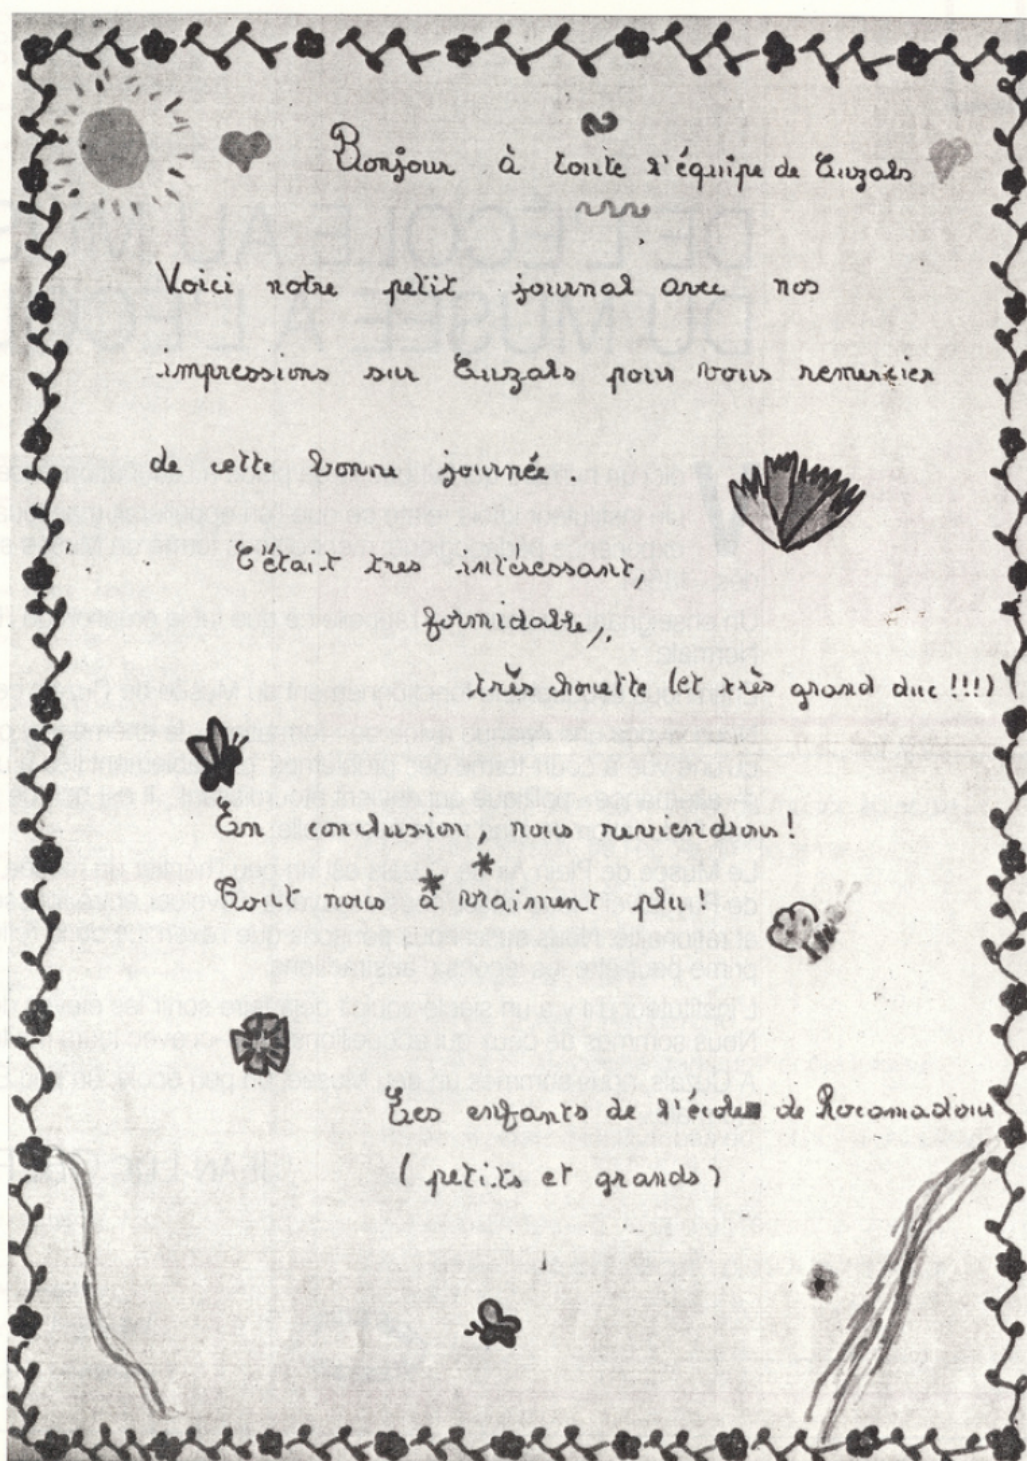 Bonjour à toute l'équipe de Cuzals
Voici notre petit journal avec nos
impressions sur Cuzals pour vous remercier
de cette bonne journée.
C'était tres intéressant,
formidable,
très chouette (et très grand duc !!!)
En conclusion, nous reviendrons !
Tout nous à vraiment plu !
Les enfants de l'école de Rocamadour
(petits et grands)